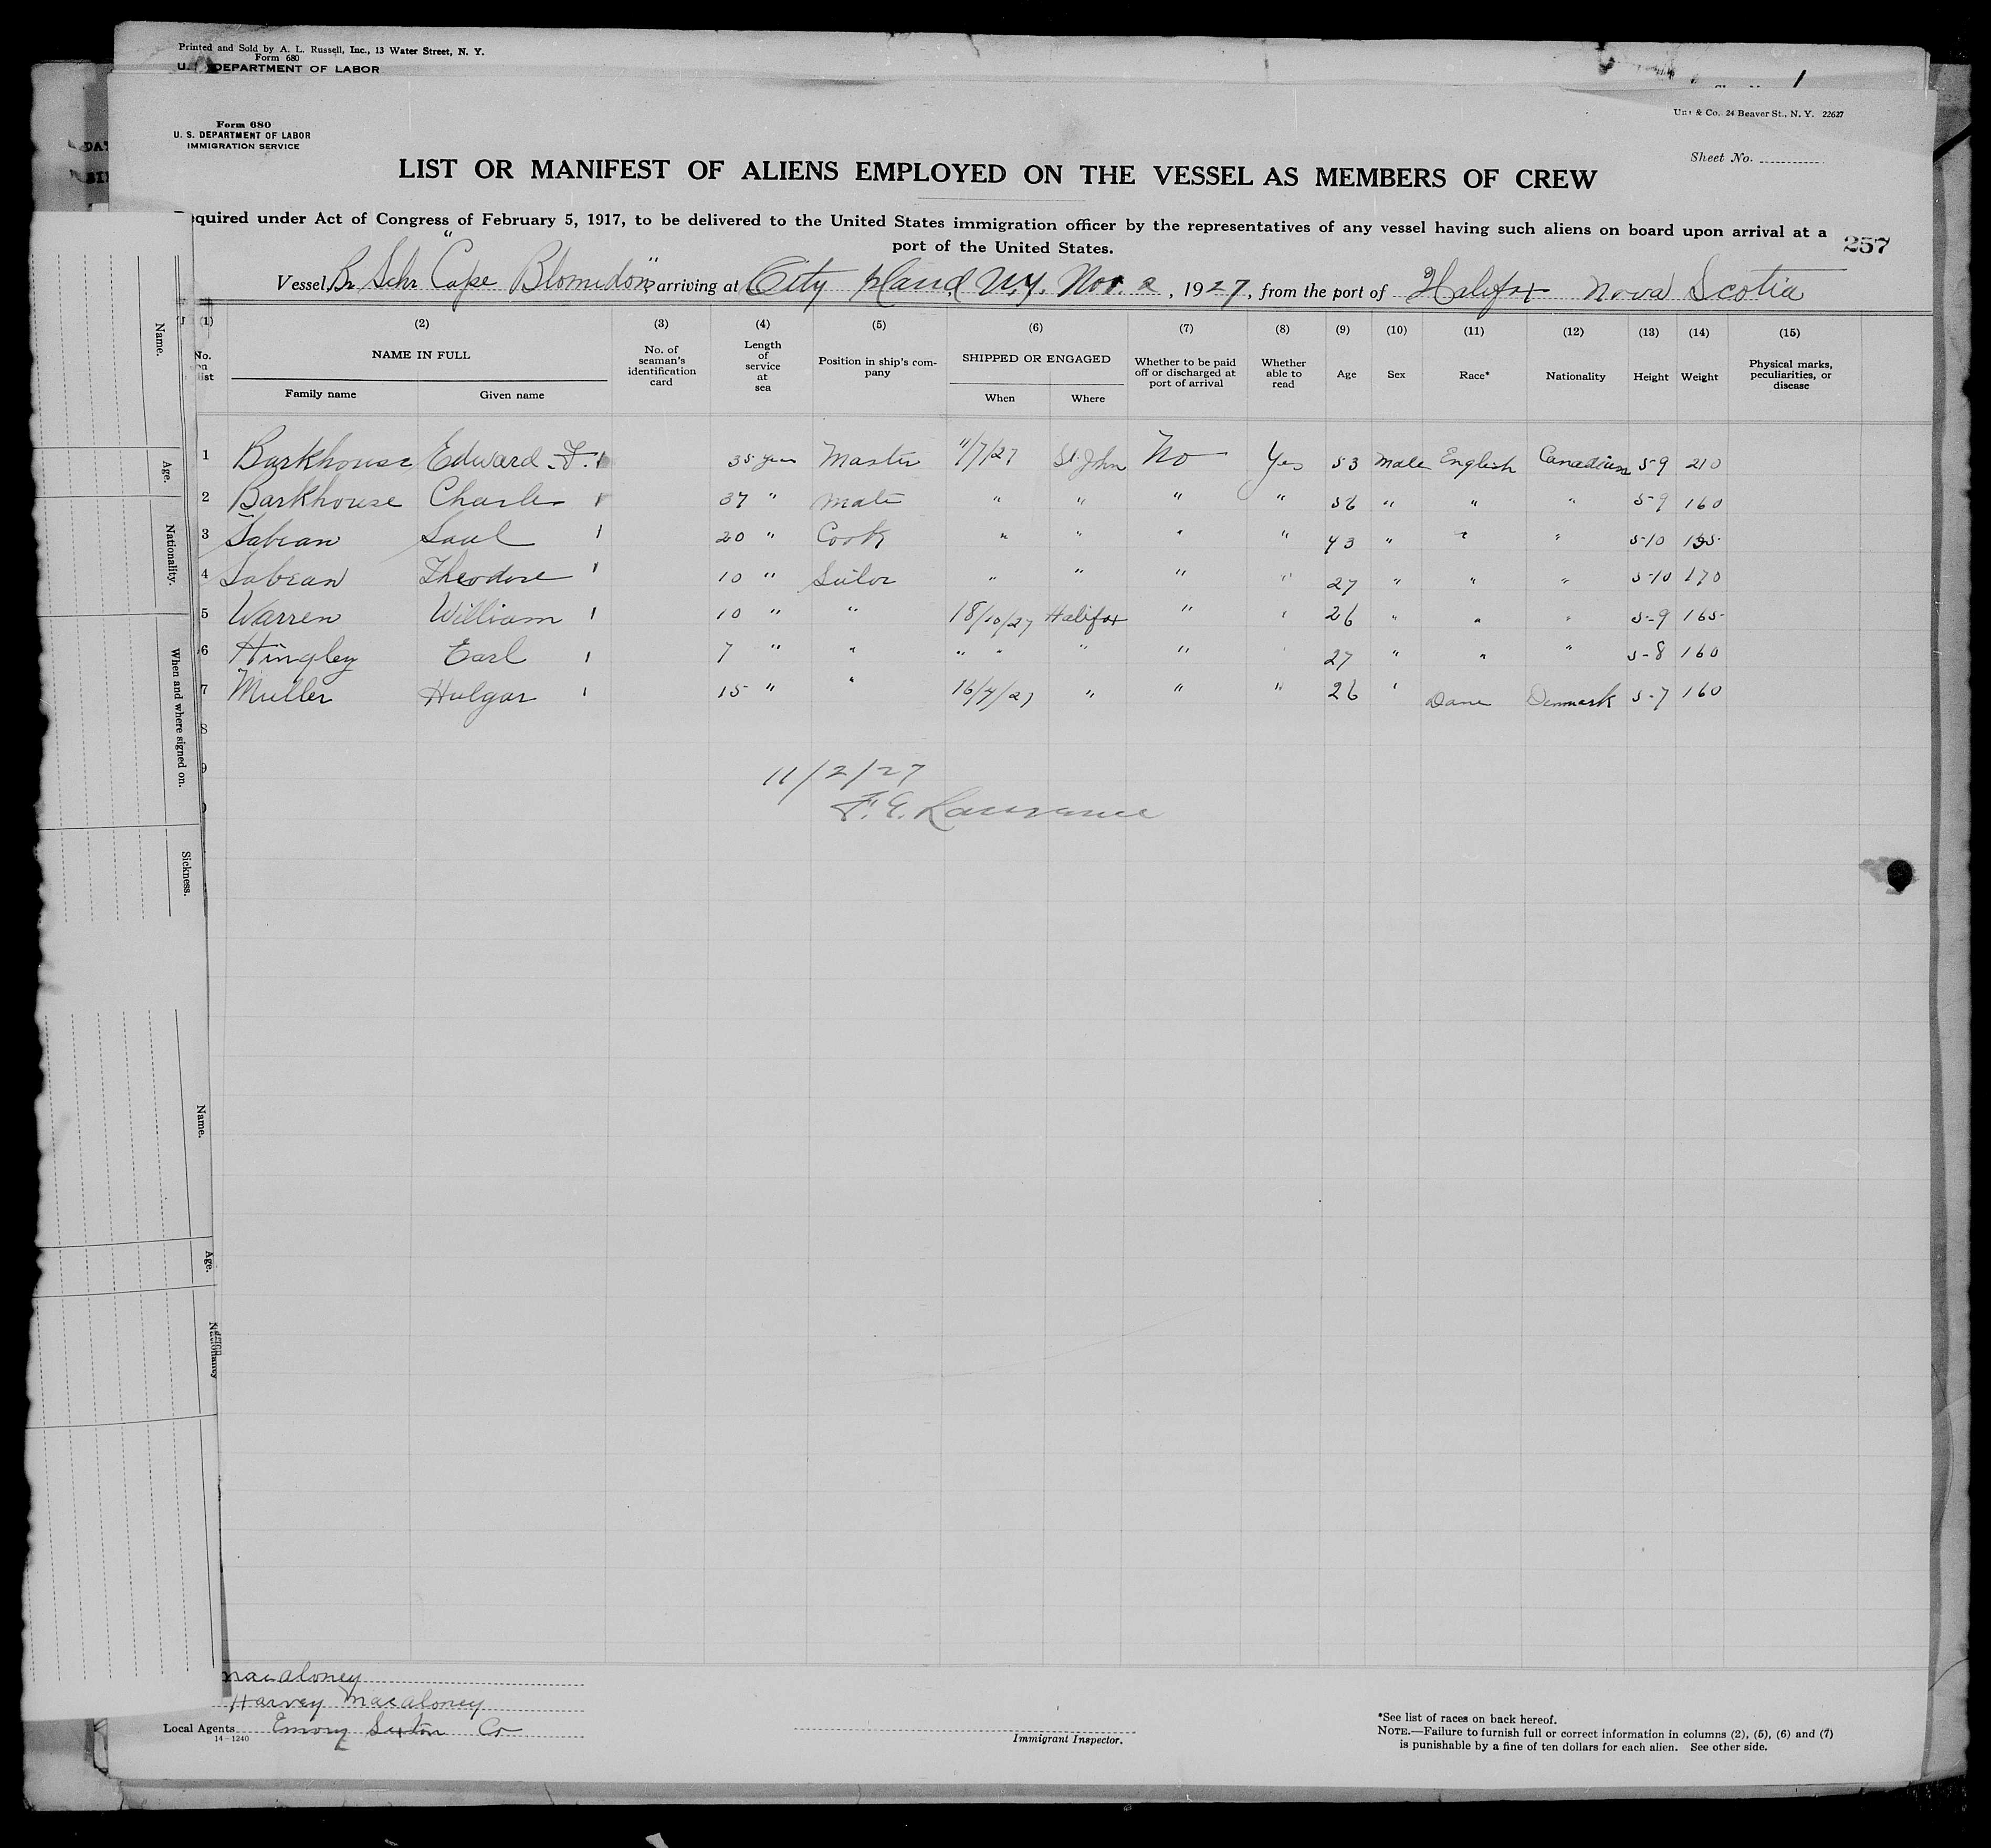 Printed and Sold by A. L. Russell, Inc., 13 Water Street, N. Y.
Form 680
U. DEPARTMENT OF LABOR
1
Form 680
U. S. DEPARTMENT OF LABOR
IMMIGRATION SERVICE
& Co. 24 Beaver St., N. Y. 22627
Sheet No.
LIST OR MANIFEST OF ALIENS EMPLOYED ON THE VESSEL AS MEMBERS OF CREW
equired under Act of Congress of February 5, 1917, to be delivered to the United States immigration officer by the representatives of any vessel having such aliens on board upon arrival at a
port of the United States.
257
Vessel Br Schr "Cape Blomidon", arriving at City Island N.Y. Nov. 2, 1927, from the port of Halifax Nova Scotia
(1) (2) (3) (4) (5) (6) (7) (8) (9) (10) (11) (12) (13) (14) (15)
No. on list NAME IN FULL Family name Given name No. of seaman's identification card Length of service at sea Position in ship's company SHIPPED OR ENGAGED When Where Whether to be paid off or discharged at port of arrival Whether able to read Age Sex Race* Nationality Height Weight Physical marks, peculiarities, or disease
1 Barkhouse Edward F. 35 years Master 11/7/27 St. John No Yes 53 Male English Canadian 5-9 210
2 Barkhouse Charles 37 " Mate " " " " 56 " " " 5-9 160
3 Sabean Saul 20 " Cook " " " " 43 " " " 5-10
4 Sabean Theodore 10 " Sailor " " " " 27 " " " 5-10 170
5 Warren William 10 " " 18/10/27 Halifax " " 26 " " " 5-9 165
6 Hingley Earl 7 " " " " " " " 27 " " " 5-8 160
7 Muller Holgar 15 " " 16/9/27 " " " 26 " Dane Denmark 5-7 160
8
9
11/2/27
F. E. Lawrence
Name.
Age.
Nationality.
When and where signed on.
Sickness.
Name.
Age.
Nationality
Macaloney
Harvey Macaloney
Local Agents Emory Sexton Co
14-1240
Immigrant Inspector.
*See list of races on back hereof.
NOTE.—Failure to furnish full or correct information in columns (2), (5), (6) and (7)
is punishable by a fine of ten dollars for each alien. See other side.